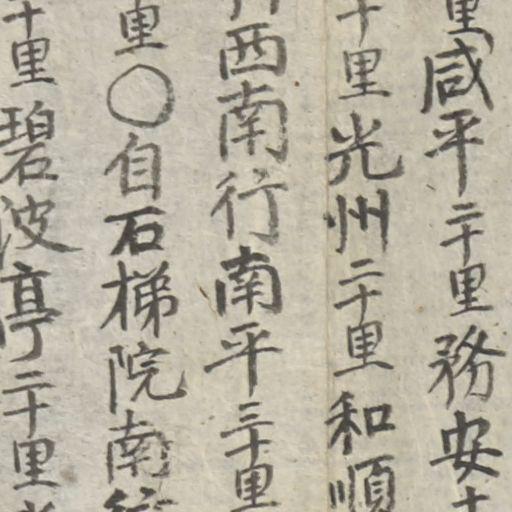 里咸平二十里務安十
十里光州二十里和順
西南行南平三十里
里〇自石梯院南行
十里碧波亭二十里